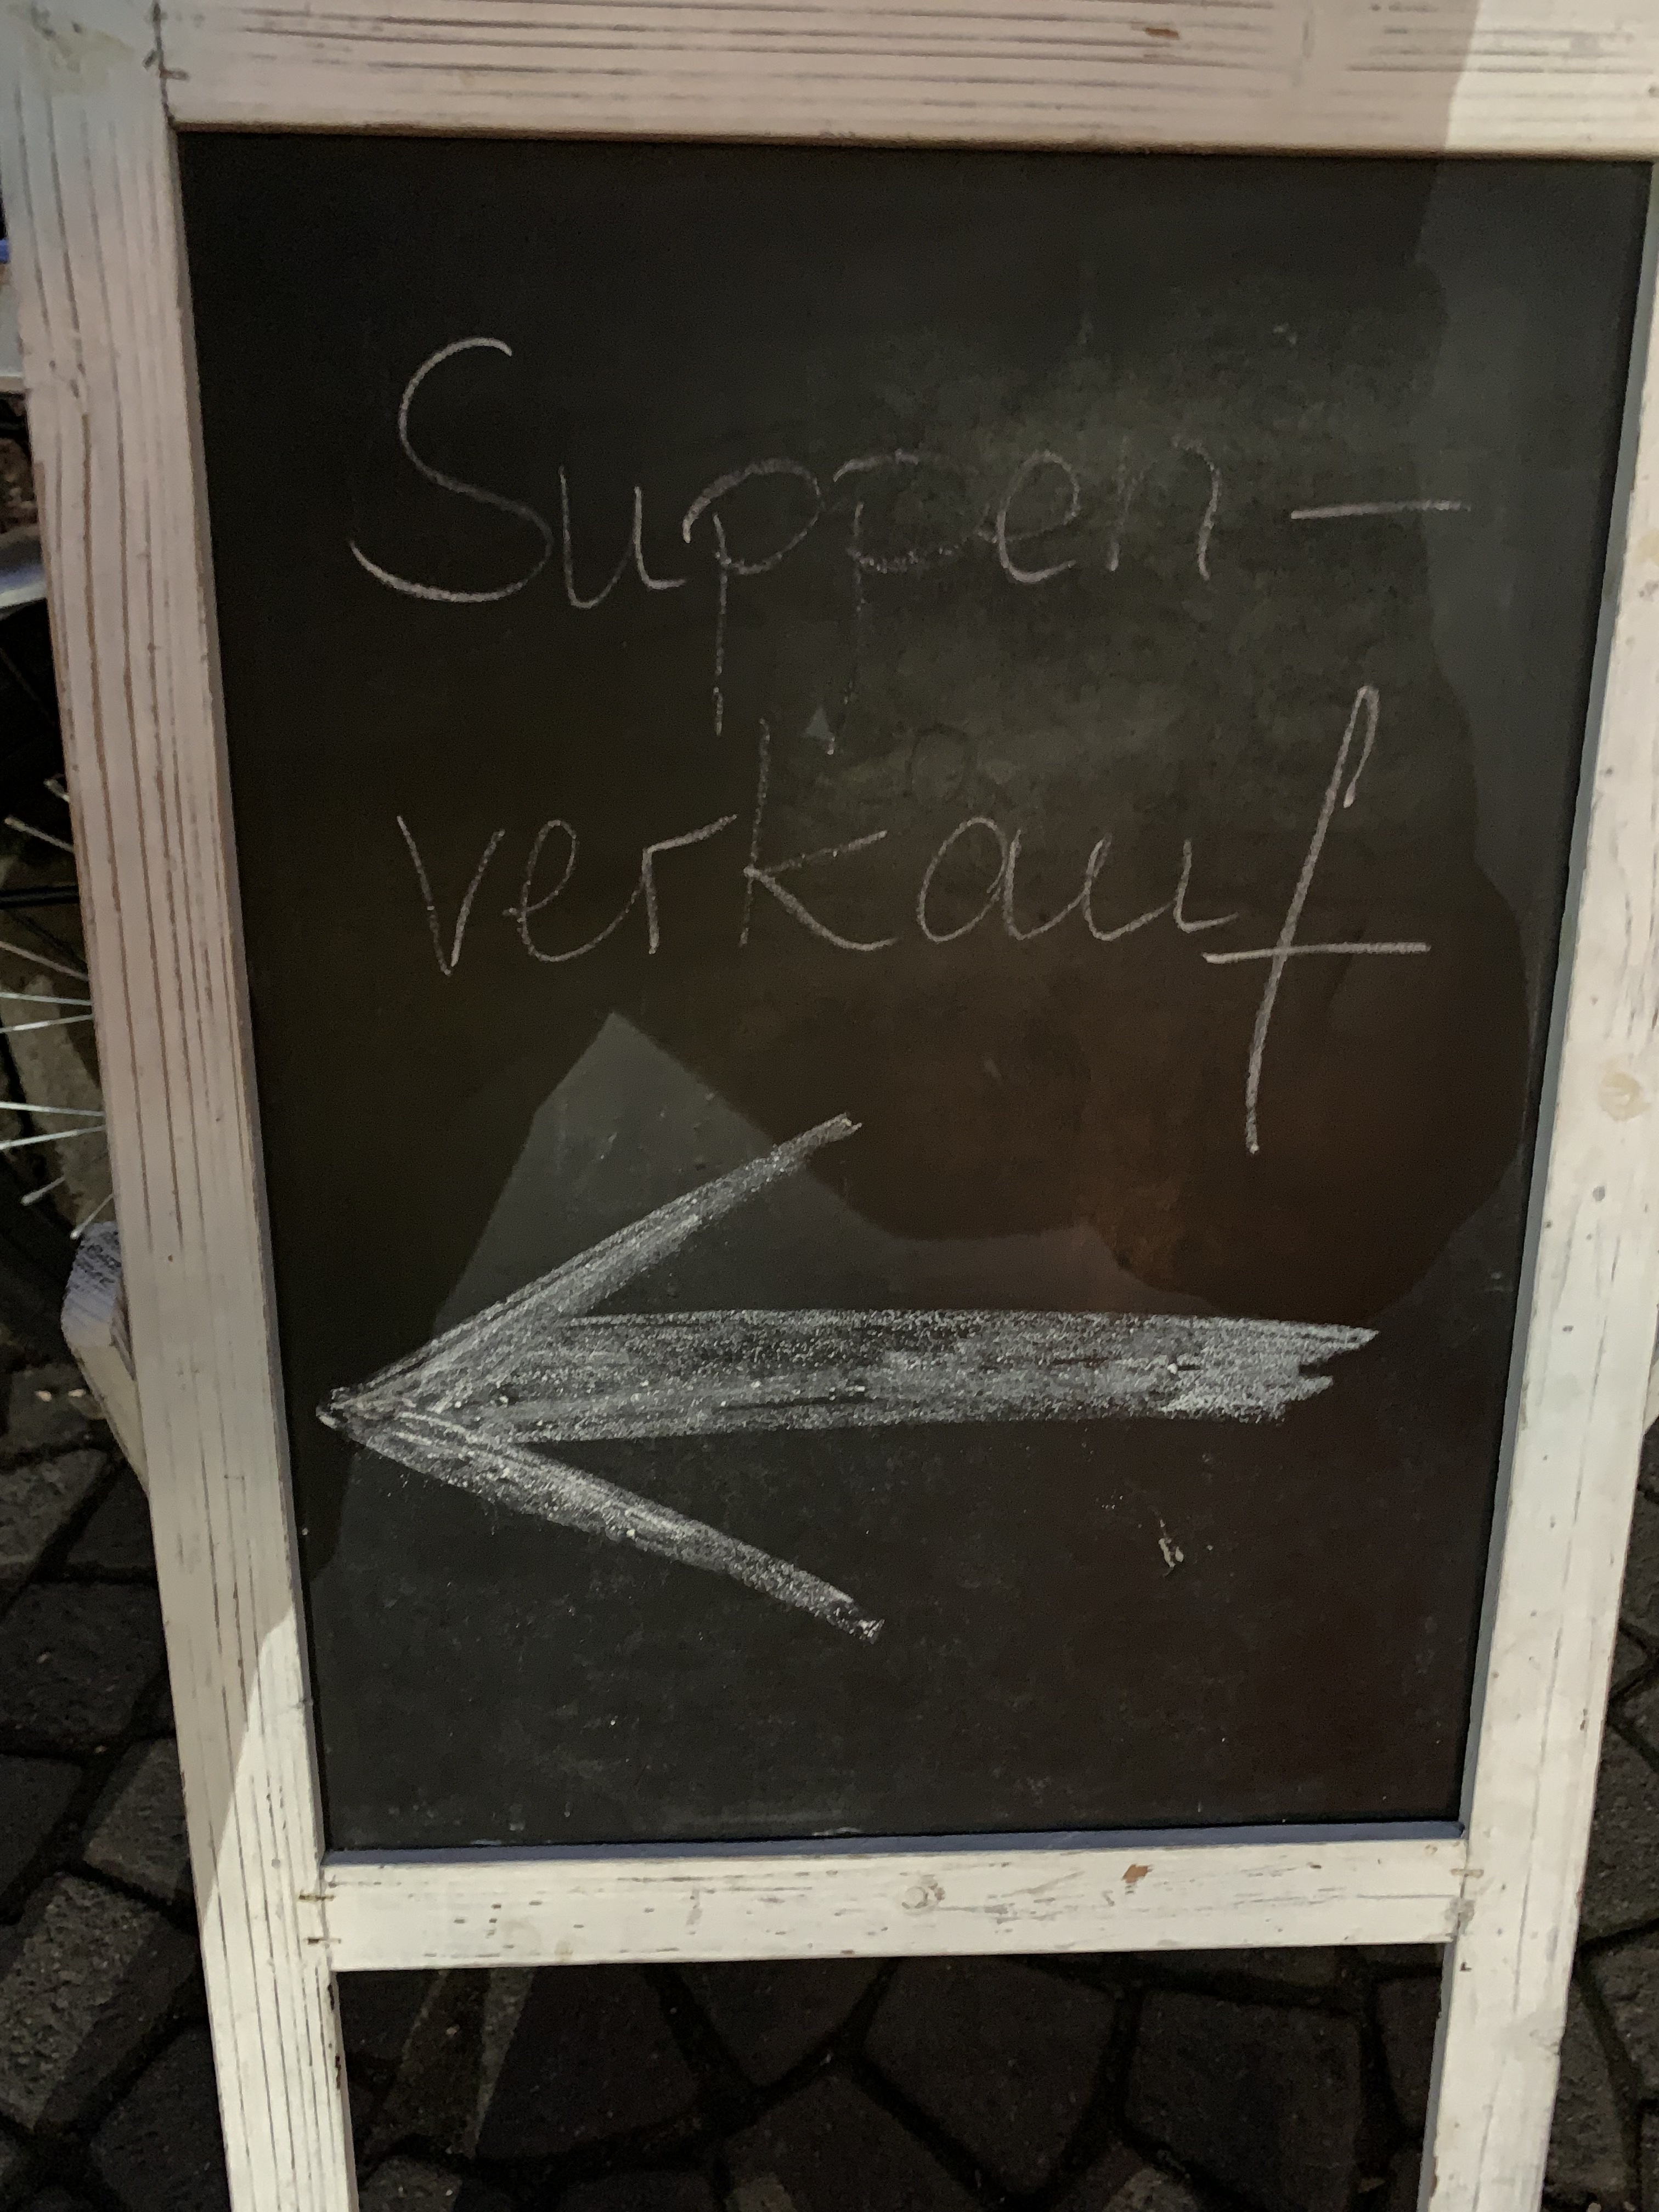 Suppen-
verkauf